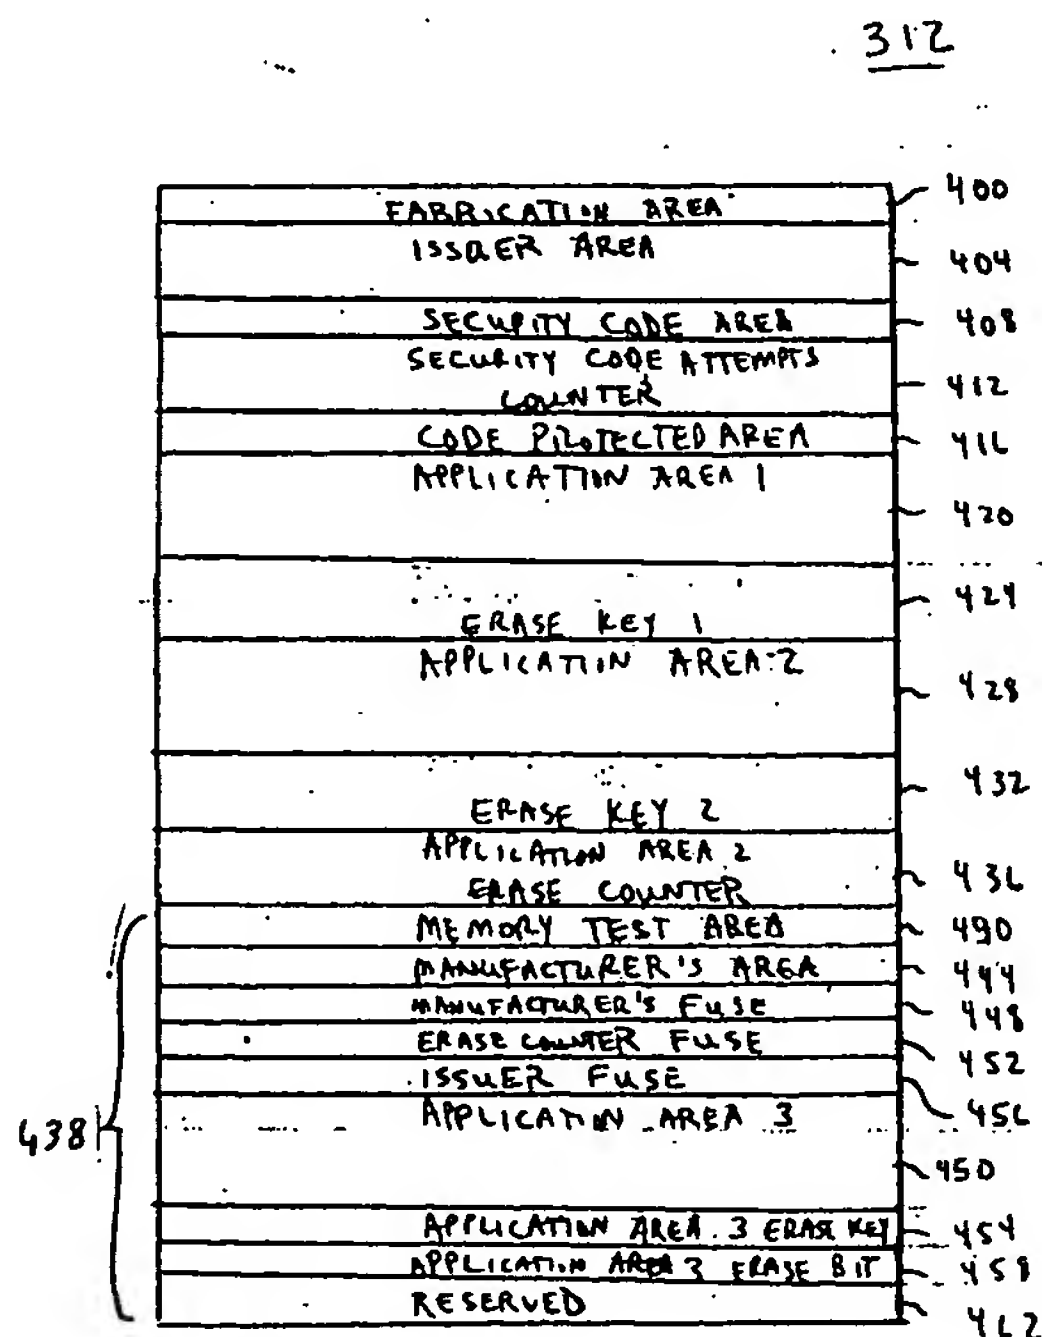 312
FABRICATION AREA 400
ISSUER AREA 404
SECURITY CODE AREA 408
SECURITY CODE ATTEMPTS
COUNTER 412
CODE PROTECTED AREA 416
APPLICATION AREA 1
420
424
ERASE KEY 1
APPLICATION AREA 2
428
432
ERASE KEY 2
APPLICATION AREA 2
ERASE COUNTER 436
MEMORY TEST AREA 490
MANUFACTURER'S AREA 444
MANUFACTURER'S FUSE 448
ERASE COUNTER FUSE 452
ISSUER FUSE 456
APPLICATION AREA 3
438
450
APPLICATION AREA 3 ERASE KEY 454
APPLICATION AREA 3 ERASE BIT 458
RESERVED 462